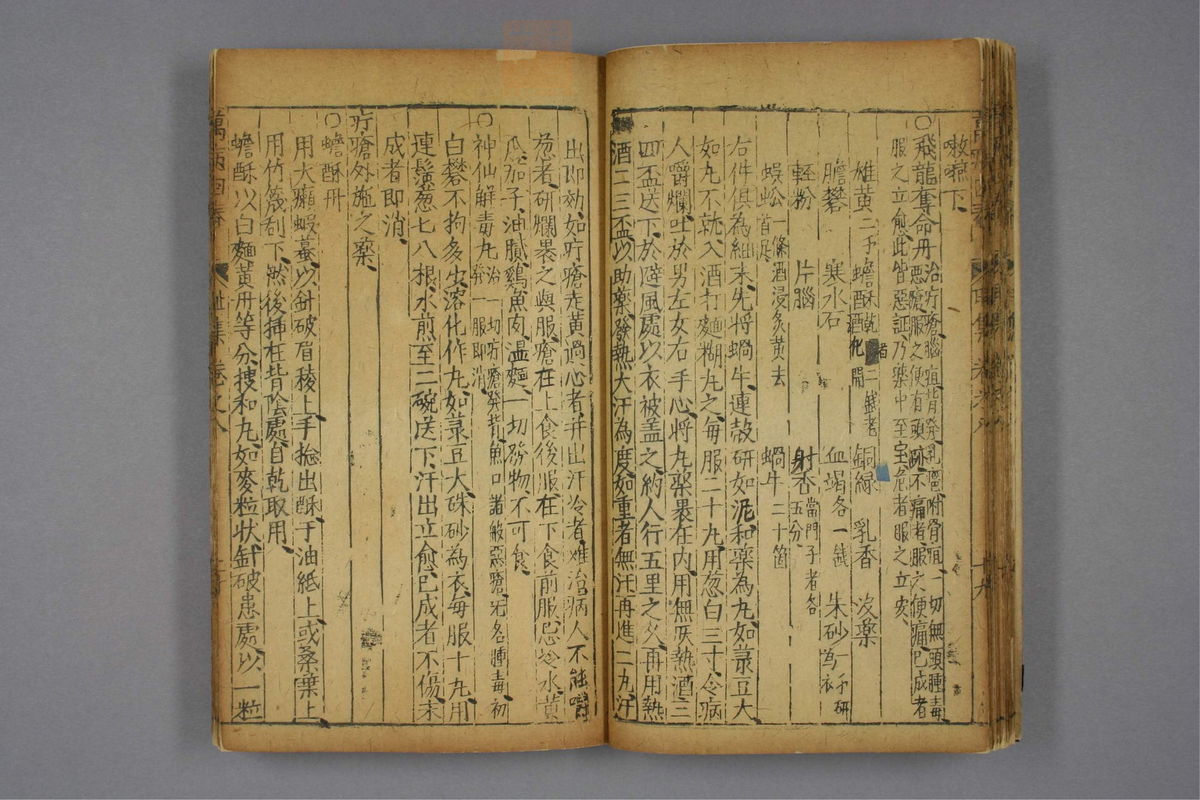 嗽嚥下
○飛龍奪命丹
治疔瘡腦疽背發乳癰附骨疽一切無頭腫毒
惡瘡服之便有頭不痛者服之便痛已成者
服之立愈此皆惡証乃藥中至宝危者服之立安
雄黃二錢 蟾酥乾者二錢老酒化開 銅綠 乳香 沒藥
膽礬 寒水石 血竭各一錢 朱砂一錢研為衣
輕粉 片腦 射香當門子者各五分
蜈蚣一條酒浸炙黃去首足 蝸牛二十箇
右件俱為細末先將蝸牛連殼研如泥和藥為丸如菉豆大
如丸不就入酒打麵糊丸之每服二十九用葱白三寸令病
人嚼爛吐於男左女右手心將丸藥裹在內用無灰熱酒三
四盃送下於避風處以衣被盖之約人行五里之久再用熱
酒二三盃以助藥發熱大汗為度如重者無汗再進二丸汗
出即効如疔瘡走黃過心者并出汗冷者难治病人不能嚼
葱者研爛裹之與服瘡在上食後服在下食前服忌冷水黃
瓜茄子油膩鷄魚肉湿麵一切發物不可食
○神仙解毒丸
治一切疔瘡發背魚口諸般惡瘡无名腫毒初
發一服即消
白礬不拘多少溶化作丸如菉豆大硃砂為衣每服十丸用
連鬚葱七八根水煎至二碗送下汗出立愈已成者不傷未
成者即消
疔瘡外施之藥
○蟾酥丹
用大癩蝦蟇以針破眉稜上手捻出酥于油紙上或桑葉上
用竹篾刮下然後插在背陰處自乾取用
蟾酥以白麵黃丹等分搜和丸如麥粒狀針破患處以一粒
萬病回春
卷之八